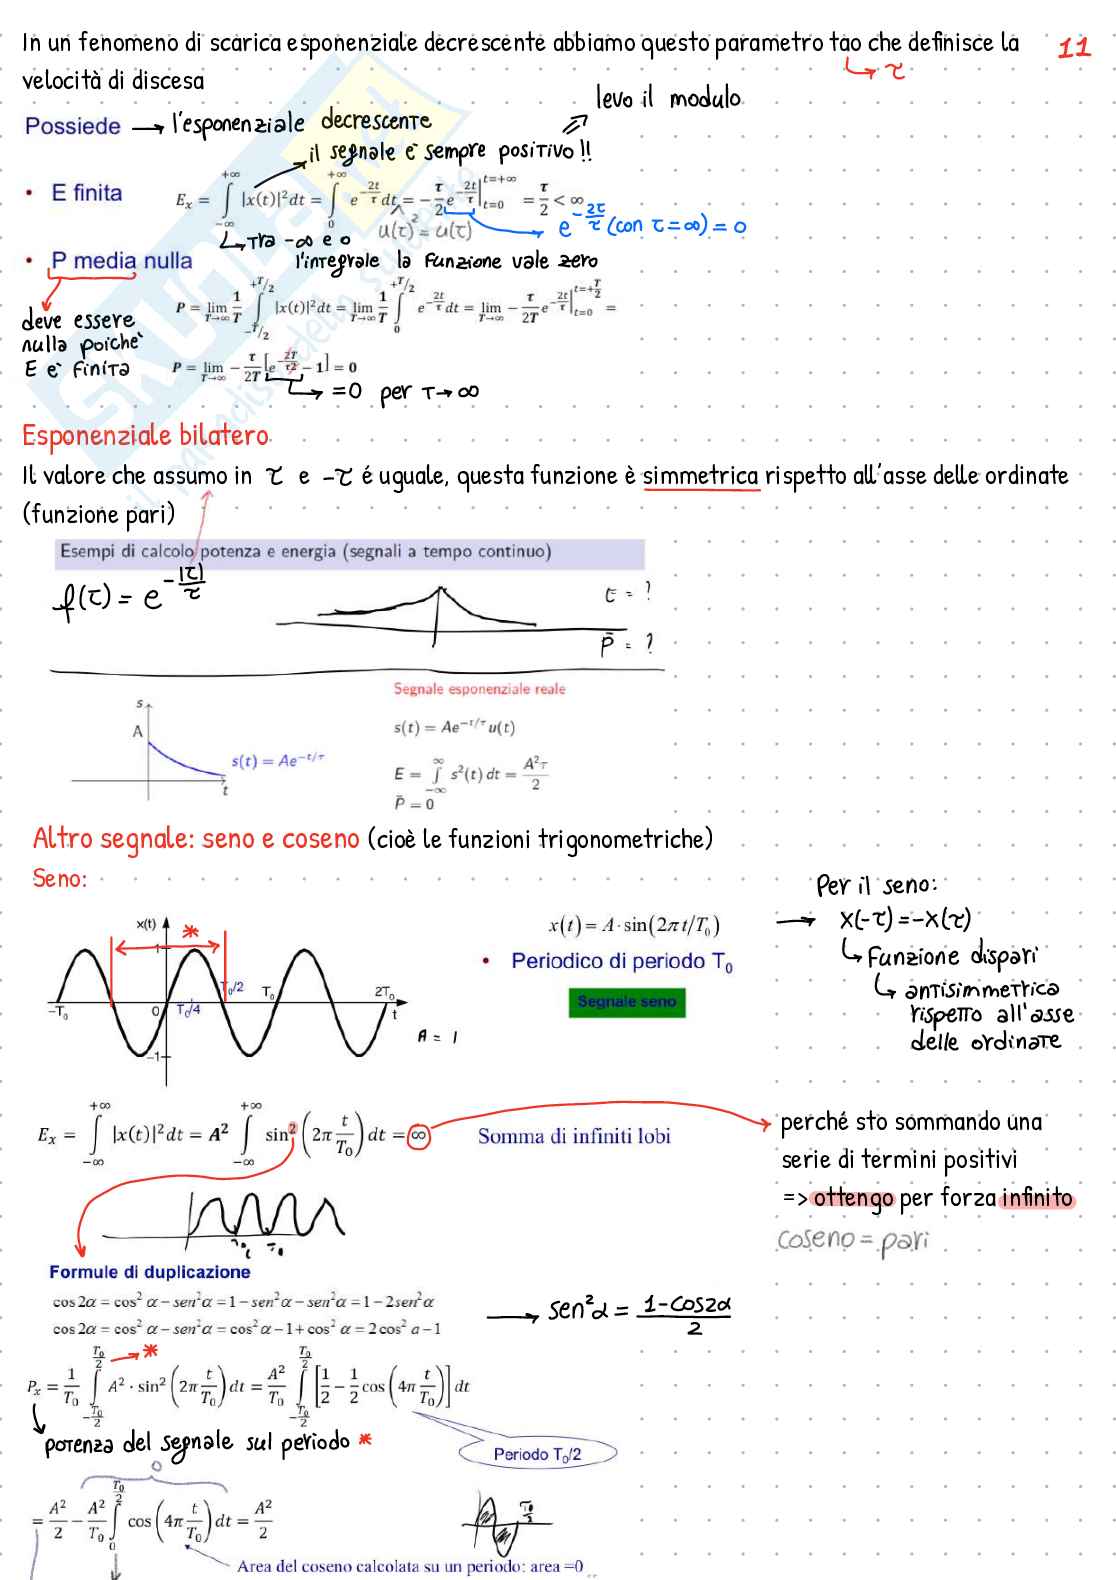 In un fenomeno di scarica esponenziale decrescente abbiamo questo parametro tao che definisce la
11
↳ τ
velocità di discesa
levo il modulo
Possiede → l'esponenziale decrescente
il segnale è sempre positivo!!
• E finita
E_x = ∫_{-∞}^{+∞} |x(t)|² dt = ∫_0^{+∞} e^{-2t/τ} dt = -τ/2 e^{-2t/τ} |_{t=0}^{t=+∞} = τ/2 < ∞
u(τ)² = u(τ)
e^{-2τ/τ} (con τ=∞) = 0
↳ Tra -∞ e 0
l'integrale la funzione vale zero
• P media nulla
P = lim_{T→∞} 1/T ∫_{-T/2}^{+T/2} |x(t)|² dt = lim_{T→∞} 1/T ∫_0^{+T/2} e^{-2t/τ} dt = lim_{T→∞} -τ/2T e^{-2t/τ} |_{t=0}^{t=+T/2} =
deve essere
nulla poiché
E è finita
P = lim_{T→∞} -τ/2T [e^{-2T/τ2} - 1] = 0
↳ =0 per T→∞
Esponenziale bilatero
Il valore che assumo in τ e -τ é uguale, questa funzione è simmetrica rispetto all'asse delle ordinate
(funzione pari)
Esempi di calcolo potenza e energia (segnali a tempo continuo)
f(τ) = e^{-|τ|/τ}
E = ?
P̄ = ?
Segnale esponenziale reale
s
A
s(t) = Ae^{-t/τ}
t
s(t) = Ae^{-t/τ} u(t)
E = ∫_{-∞}^{∞} s²(t) dt = A²τ/2
P̄ = 0
Altro segnale: seno e coseno (cioè le funzioni trigonometriche)
Seno:
x(t)
*
1
-T₀
0
T₀/4
T₀/2
T₀
2T₀
t
-1
A = 1
x(t) = A·sin(2πt/T₀)
• Periodico di periodo T₀
Segnale seno
Per il seno:
→ x(-τ) = -x(τ)
↳ Funzione dispari
↳ antisimmetrica
rispetto all'asse
delle ordinate
E_x = ∫_{-∞}^{+∞} |x(t)|² dt = A² ∫_{-∞}^{+∞} sin² (2π t/T₀) dt = ∞
Somma di infiniti lobi
perché sto sommando una
serie di termini positivi
=> ottengo per forza infinito
coseno = pari
Formule di duplicazione
cos 2α = cos² α - sen²α = 1 - sen²α - sen²α = 1 - 2sen²α
cos 2α = cos² α - sen²α = cos² α - 1 + cos² α = 2cos² a - 1
→ sen²α = 1-cos2α / 2
P_x = 1/T₀ ∫_{-T₀/2}^{T₀/2} A² · sin² (2π t/T₀) dt = A²/T₀ ∫_{-T₀/2}^{T₀/2} [1/2 - 1/2 cos (4π t/T₀)] dt
→ *
potenza del segnale sul periodo *
Periodo T₀/2
0
= A²/2 - A²/T₀ ∫_0^{T₀/2} cos (4π t/T₀) dt = A²/2
T₀/2
Area del coseno calcolata su un periodo: area =0